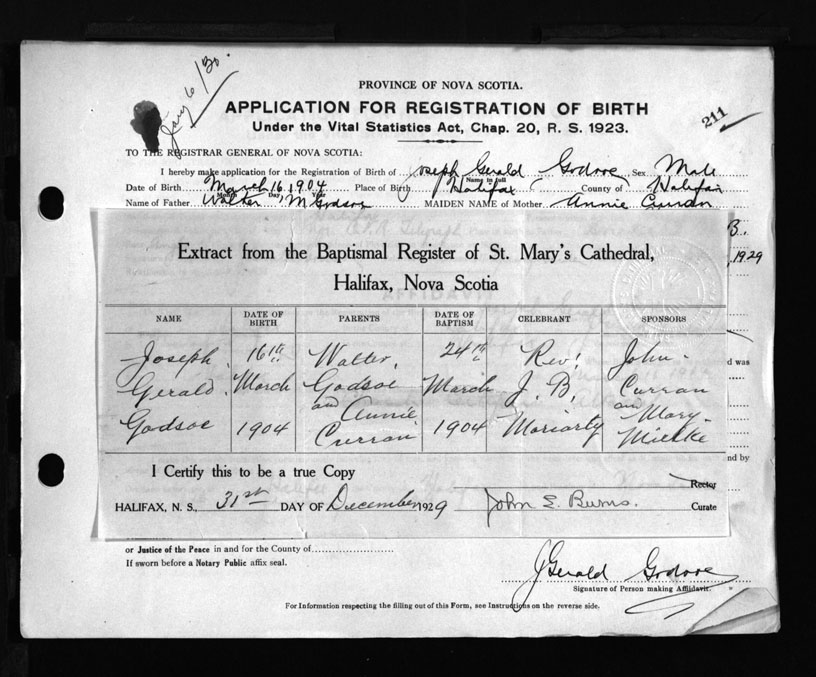 Jany 6/30.
PROVINCE OF NOVA SCOTIA.
APPLICATION FOR REGISTRATION OF BIRTH
211
Under the Vital Statistics Act, Chap. 20, R. S. 1923.
TO THE REGISTRAR GENERAL OF NOVA SCOTIA:
I hereby make application for the Registration of Birth of Joseph Gerald Godsoe Sex Male
Name in full
Date of Birth March 16, 1904 Place of Birth Halifax County of Halifax
Month Day Year
Name of Father Walter M Godsoe MAIDEN NAME of Mother Annie Curran
B.
, 1929
Extract from the Baptismal Register of St. Mary's Cathedral,
Halifax, Nova Scotia
NAME DATE OF BIRTH PARENTS DATE OF BAPTISM CELEBRANT SPONSORS
Joseph 16th Walter 24th Rev. John
Gerald March Godsoe March J. B. Curran
and Annie and Mary
Godsoe 1904 Curran 1904 Moriarty Mielke
d was
nd by
I Certify this to be a true Copy
Rector
HALIFAX, N. S., 31st DAY OF December 1929 John E. Burns. Curate
or Justice of the Peace in and for the County of
If sworn before a Notary Public affix seal.
J Gerald Godsoe
Signature of Person making Affidavit.
For Information respecting the filling out of this Form, see Instructions on the reverse side.